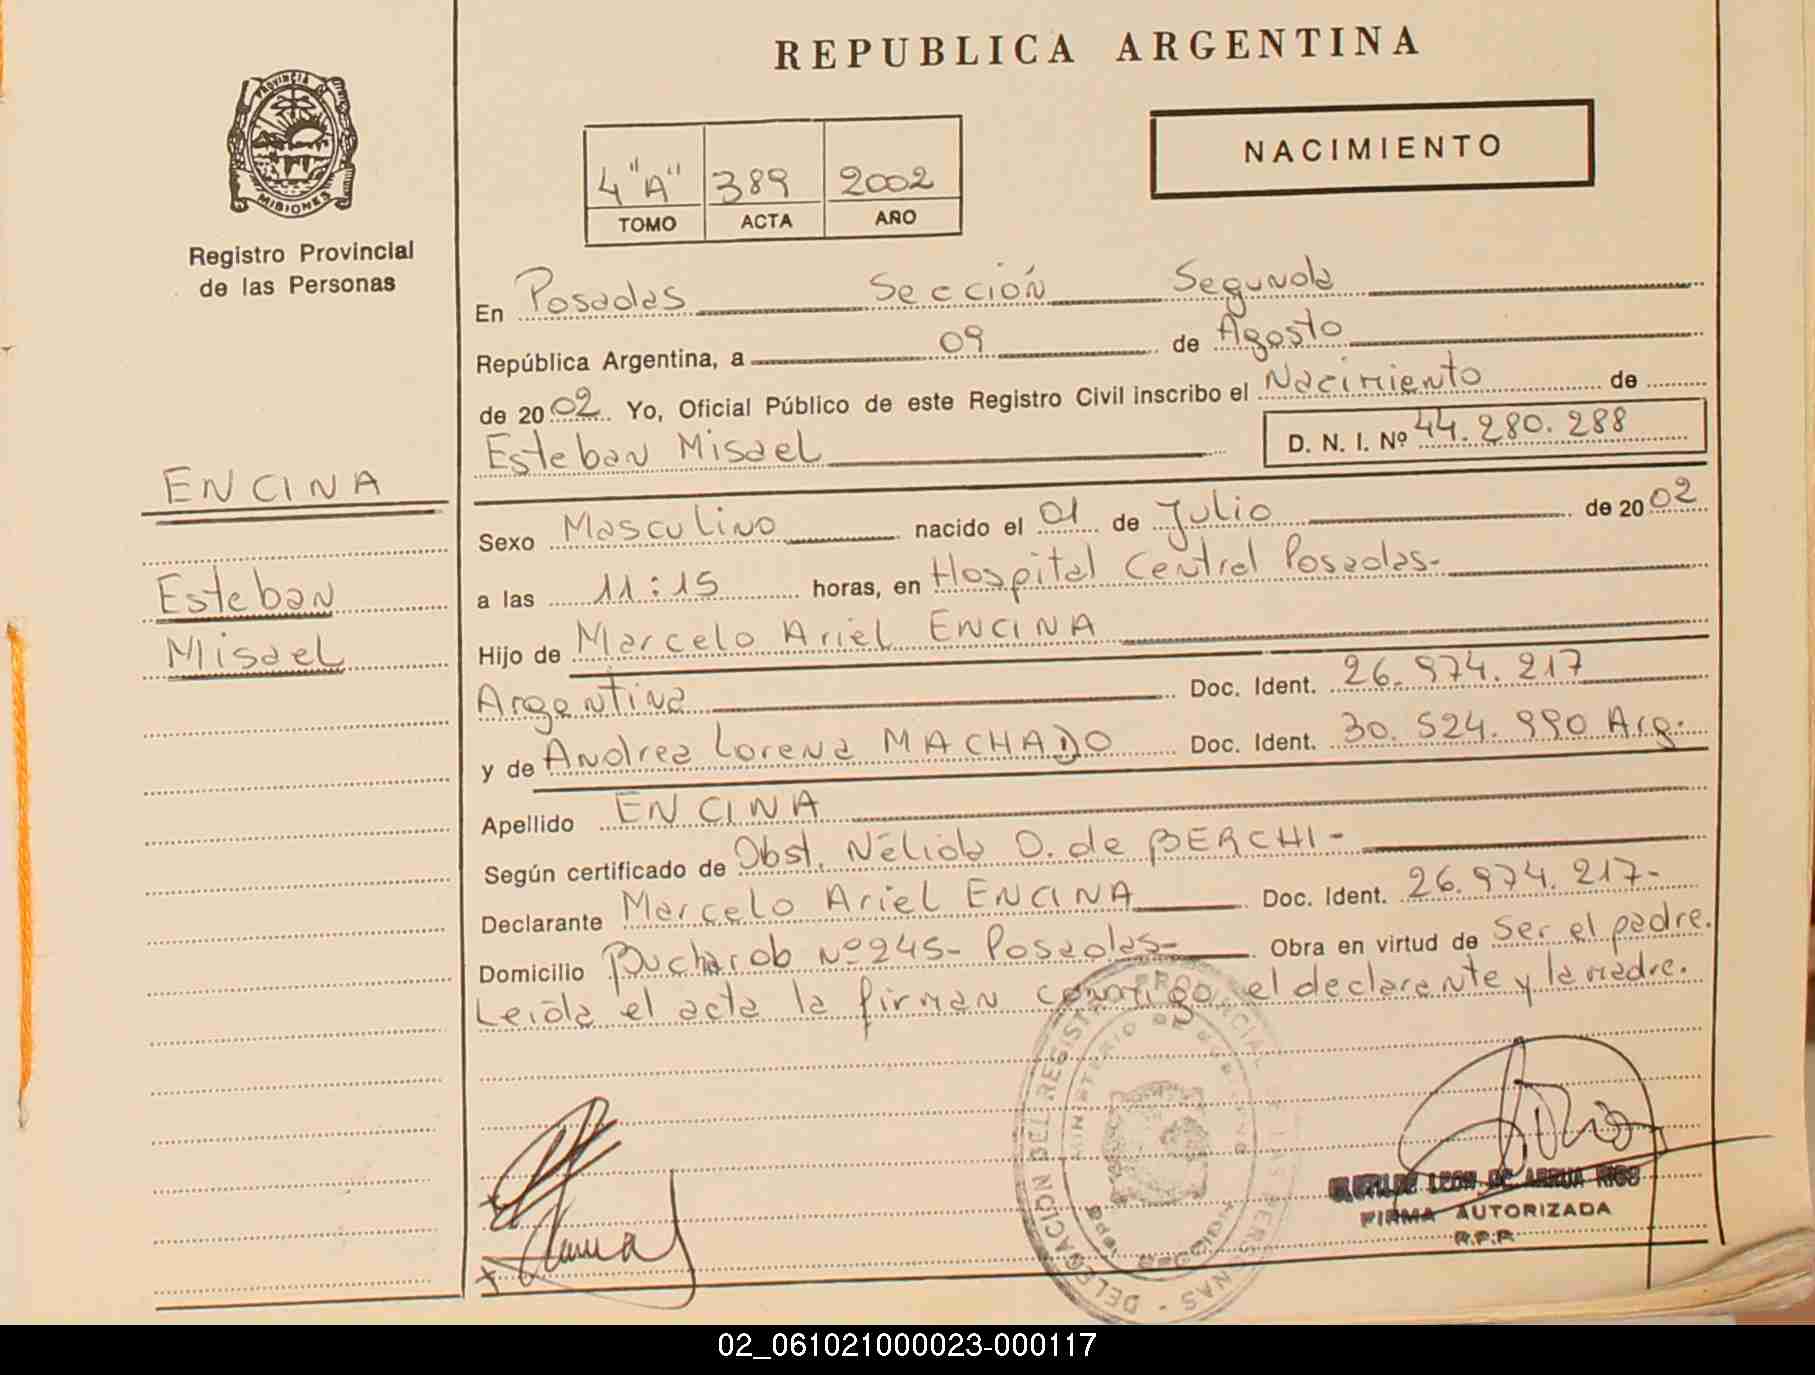 REPUBLICA ARGENTINA
PROVINCIA DE
MISIONES
Registro Provincial
de las Personas
NACIMIENTO
4 "A" 389 2002
TOMO ACTA AÑO
En Posadas Sección Segunda
República Argentina, a 09 de Agosto
de 2002 Yo, Oficial Público de este Registro Civil inscribo el Nacimiento de
Esteban Misael D. N. I. Nº 44.280.288
ENCINA
Esteban
Misael
Sexo Masculino nacido el 01 de Julio de 2002
a las 11:15 horas, en Hospital Central Posadas-
Hijo de Marcelo Ariel ENCINA
Argentina Doc. Ident. 26.974.217
y de Andrea Lorena MACHADO Doc. Ident. 30.524.990 Arg.
Apellido ENCINA
Según certificado de Obst. Nélida O. de BERCHI-
Declarante Marcelo Ariel ENCINA Doc. Ident. 26.974.217-
Domicilio Nº 245- Posadas- Obra en virtud de ser el padre.
Leída el acta la firman conmigo el declarante y la madre.
DELEGACION DEL REGISTRO PROVINCIAL DE LAS PERSONAS
MINISTERIO DE GOBIERNO
LEON DE ARRUA RIOS
FIRMA AUTORIZADA
R.P.P.
02_061021000023-000117